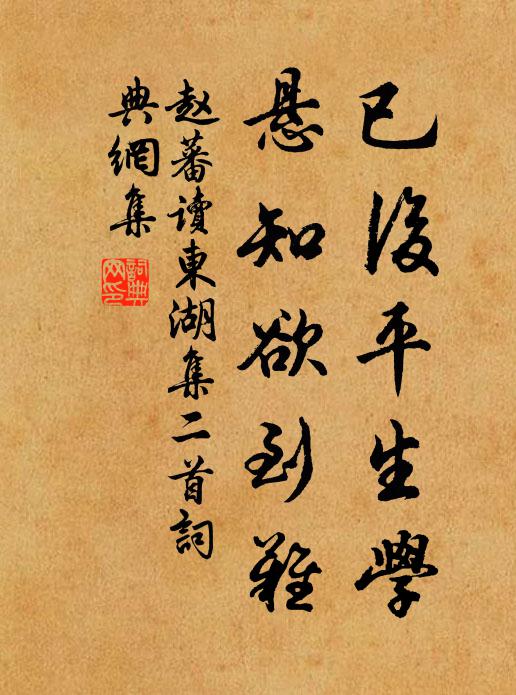 已後平生學
悬知欲到難
赵蕃讀東湖集二首詞
典網集
詞典網印